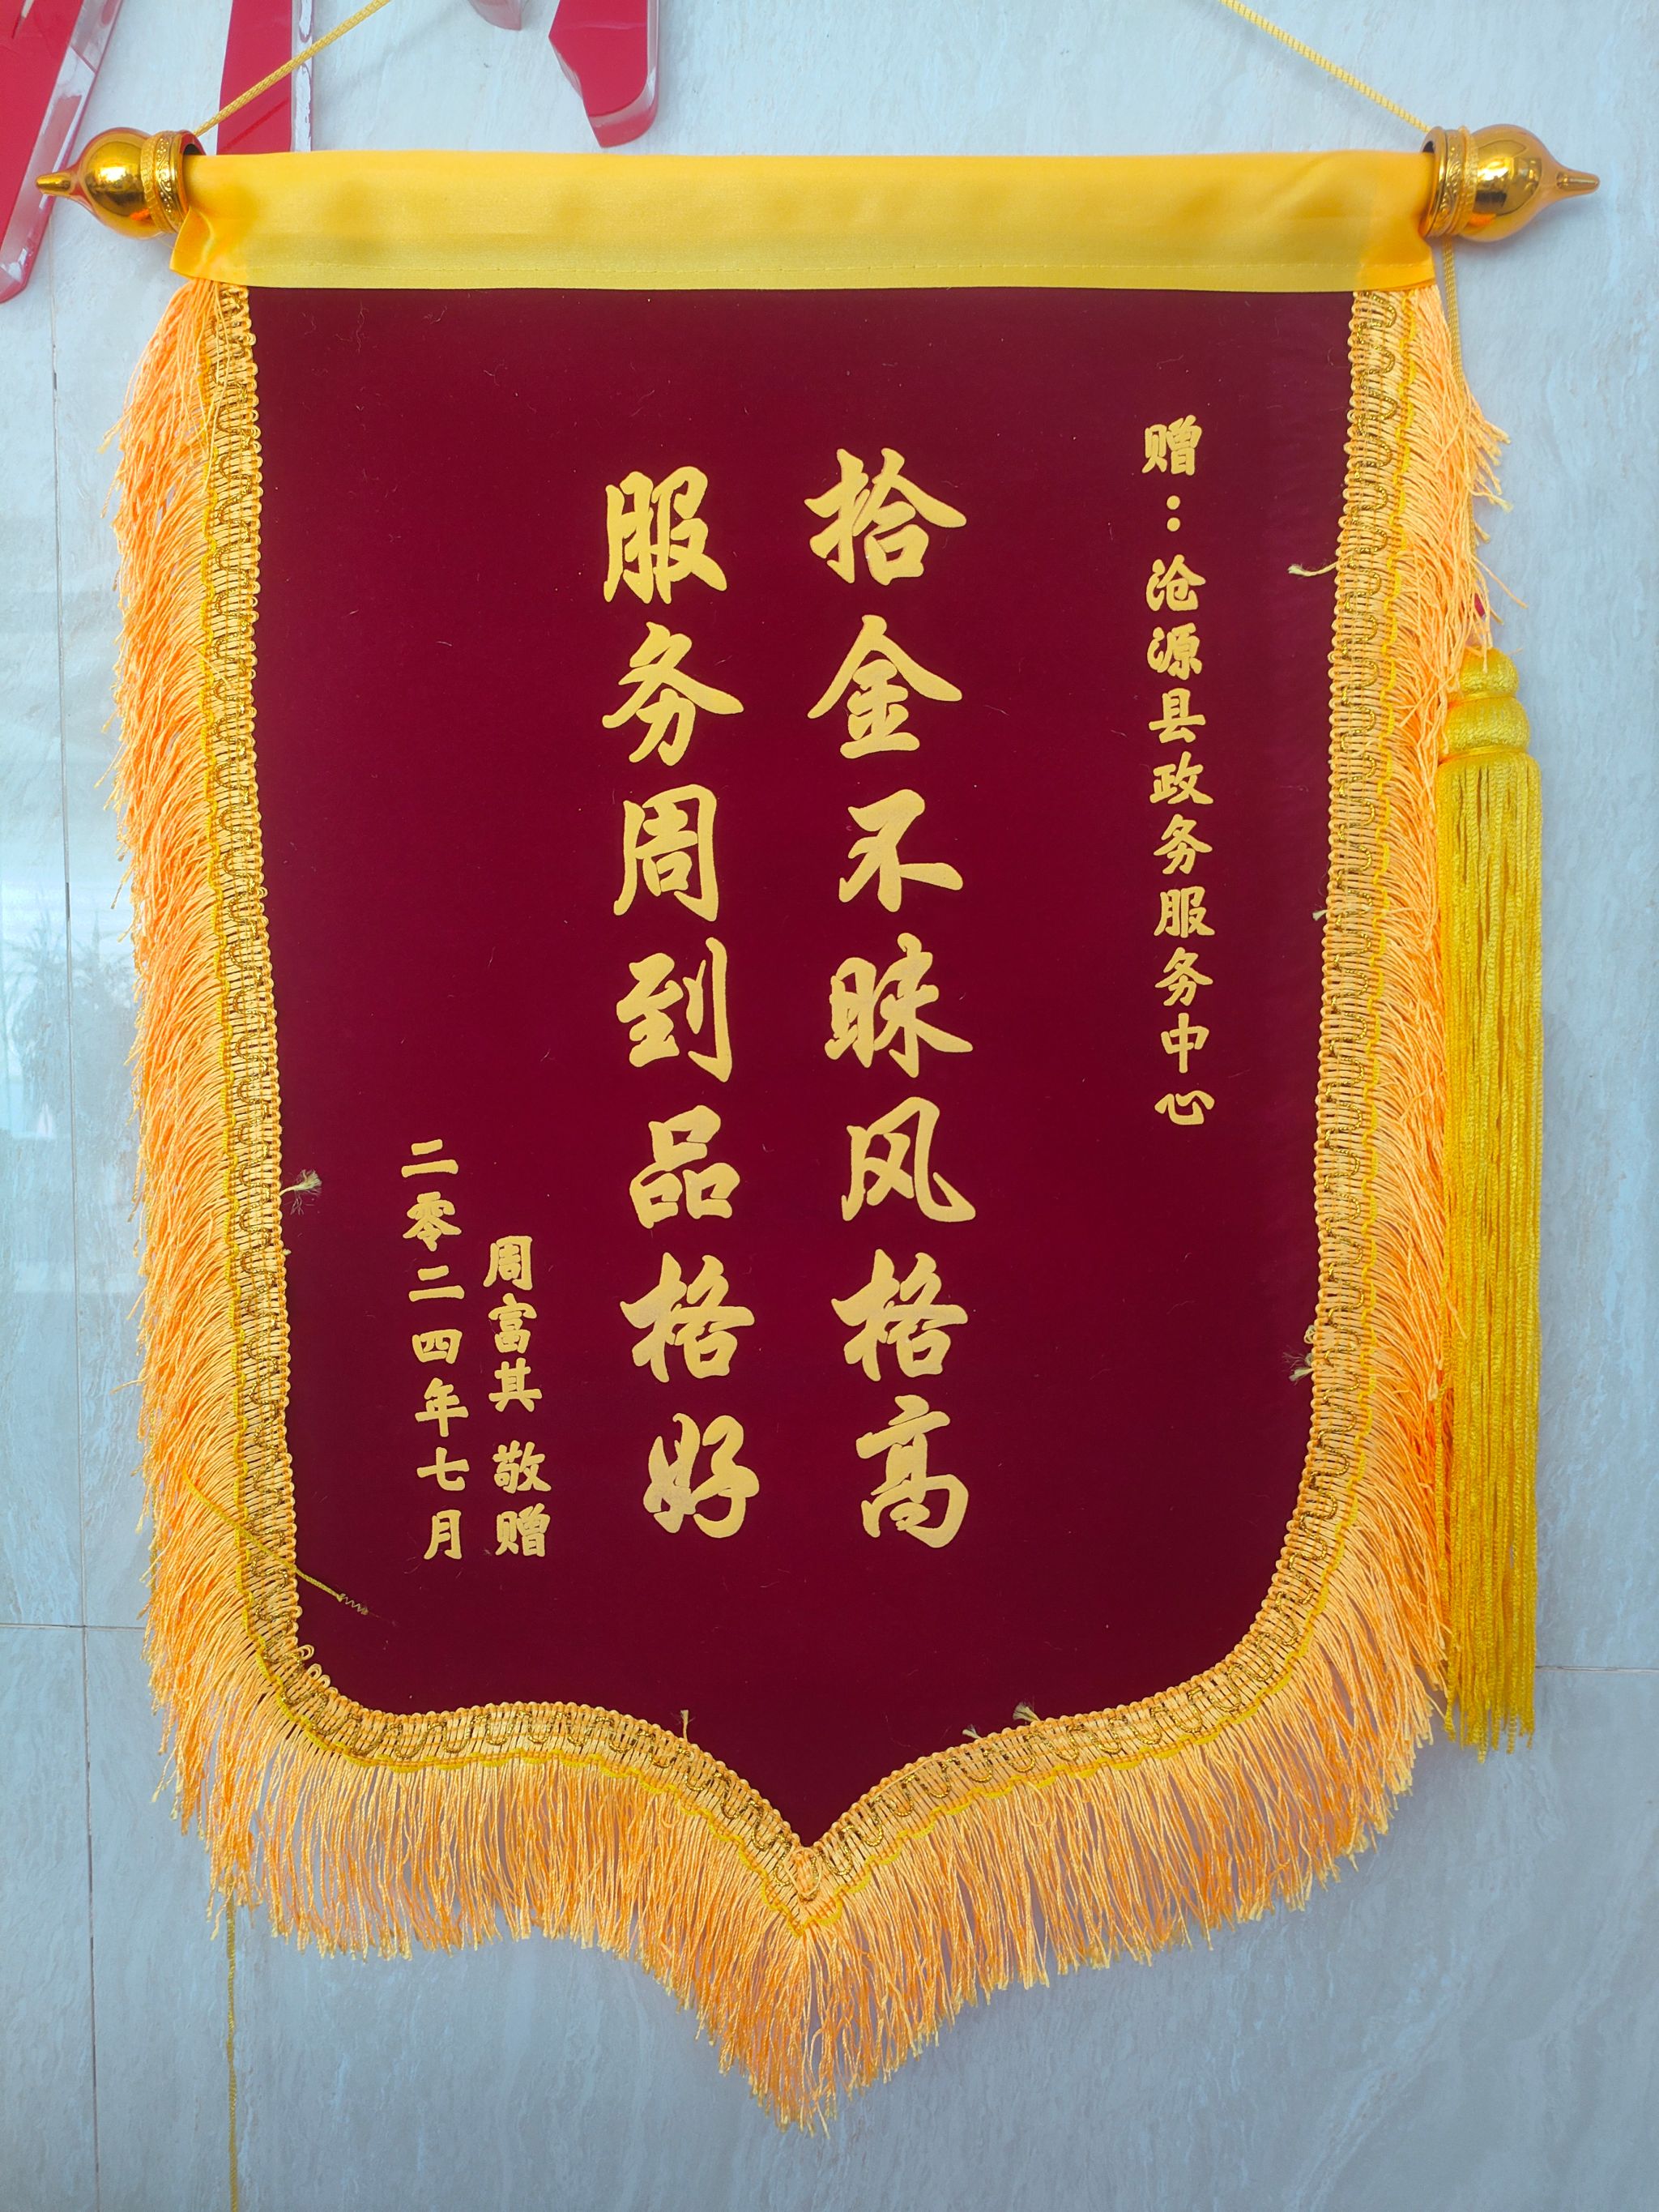 赠：沧源县政务服务中心
拾金不昧风格高
服务周到品格好
周富其 敬赠
二零二四年七月